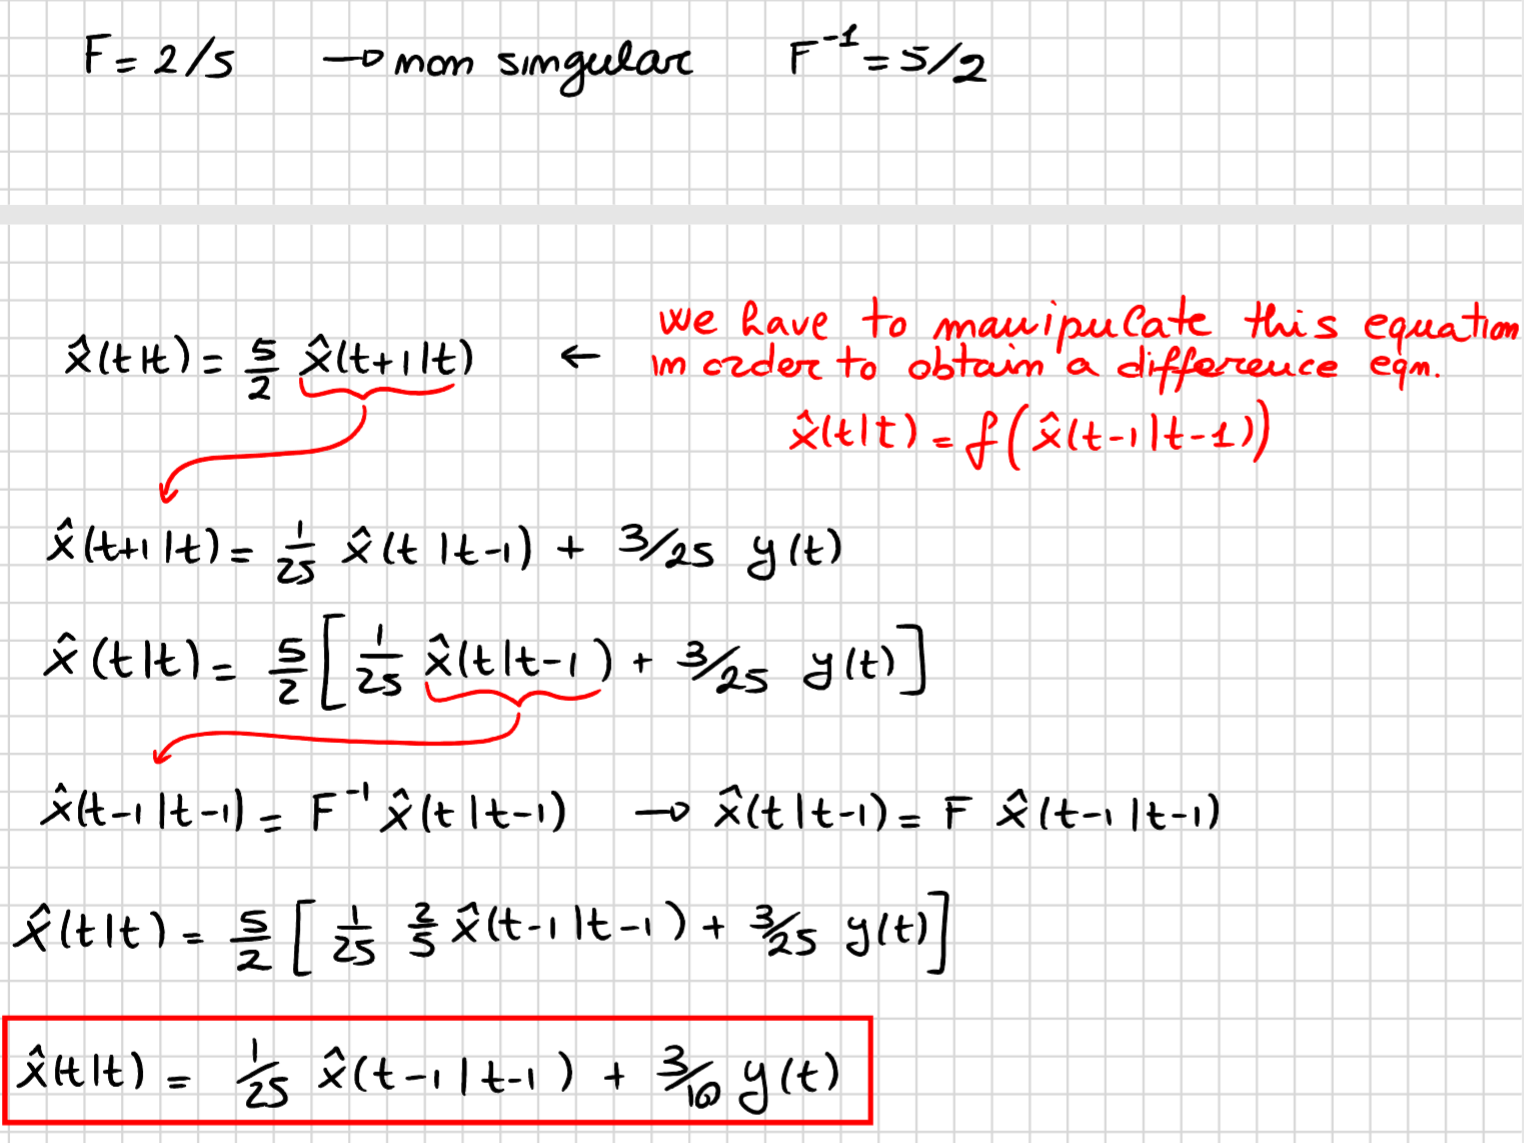 F = 2/5 → non singular F⁻¹ = 5/2
x̂(t|t) = 5/2 x̂(t+1|t) ← we have to manipulate this equation
in order to obtain a difference eqn.
x̂(t|t) = f(x̂(t-1|t-1))
x̂(t+1|t) = 1/25 x̂(t|t-1) + 3/25 y(t)
x̂(t|t) = 5/2 [1/25 x̂(t|t-1) + 3/25 y(t)]
x̂(t-1|t-1) = F⁻¹ x̂(t|t-1) → x̂(t|t-1) = F x̂(t-1|t-1)
x̂(t|t) = 5/2 [1/25 2/5 x̂(t-1|t-1) + 3/25 y(t)]
x̂(t|t) = 1/25 x̂(t-1|t-1) + 3/10 y(t)